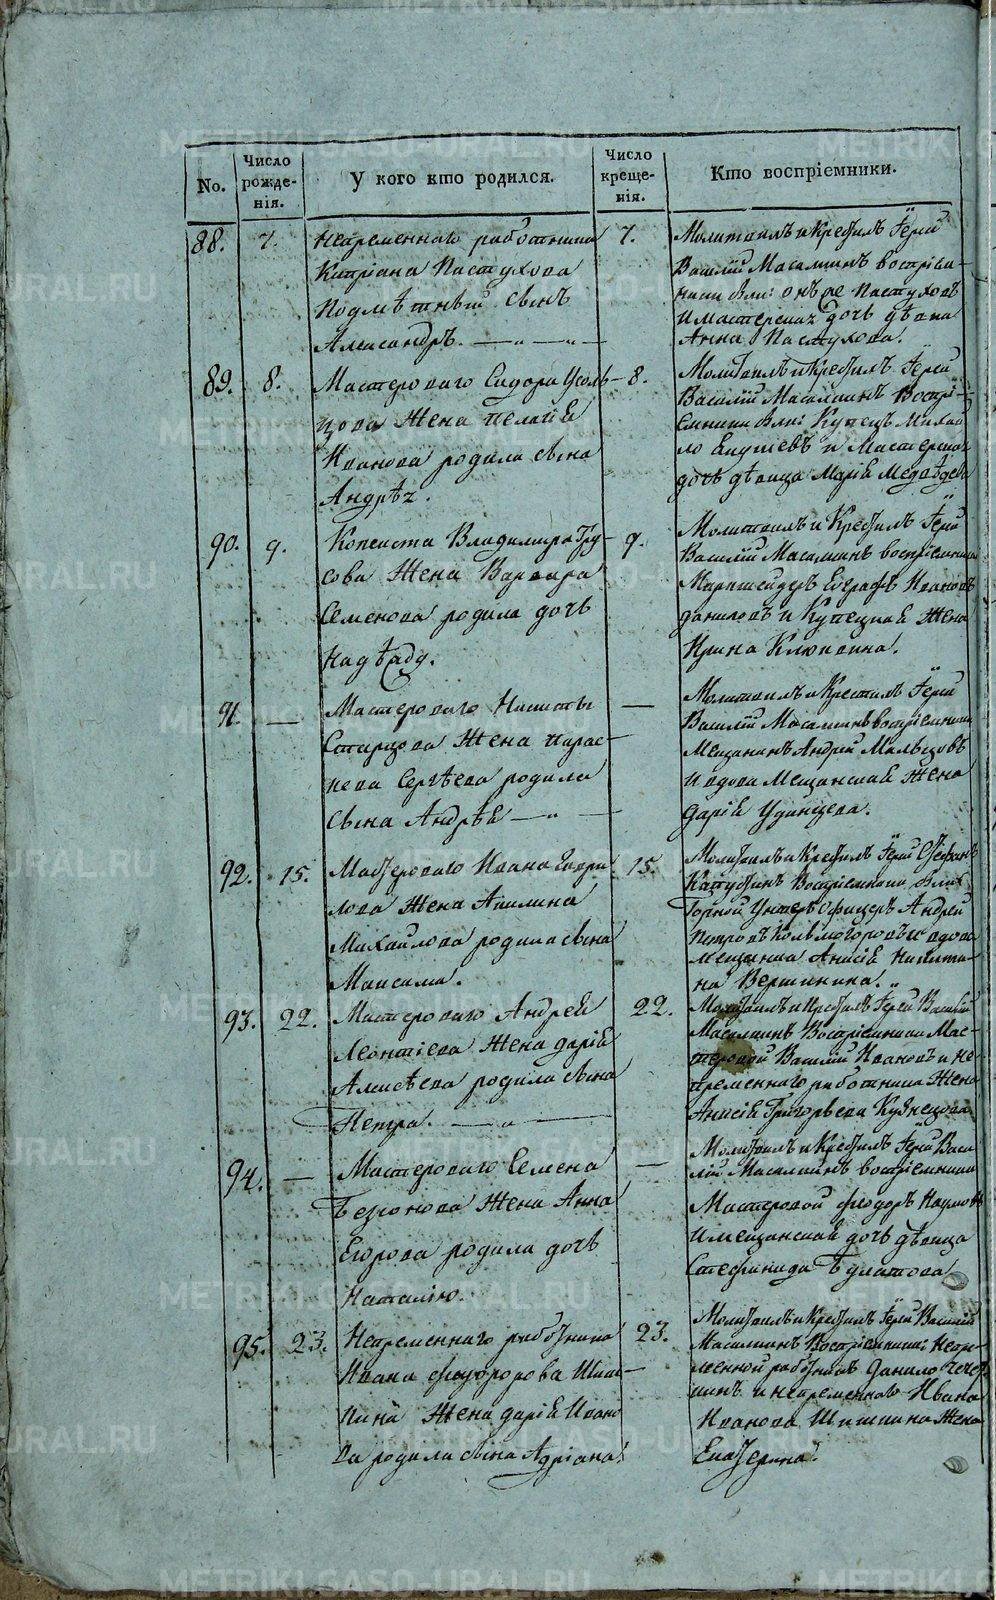 No.
Число рожде-нія.
У кого кто родился.
Число креще-нія.
Кто воспріемники.
88. 7.
Непременнаго работника
Кипріана Пастухова
Подмѣтный сынъ
Александръ.
7.
Молитвилъ и Крестилъ Іерей
Василій Масалкинъ воспріем-
ники были: онъ же Пастуховъ
и мастерская дочь дѣвица
Анна Пастухова.
89. 8.
Мастероваго Сидора Усоль-
цова Жена Пелагія
Иванова родила сына
Андрѣя.
8.
Молитвилъ и Крестилъ Іерей
Василій Масалкинъ Воспрі-
емники были Купецъ Михай
ло и Мастерская
дочь дѣвица Марія Медвѣдева
90. 9.
Копеиста Владимира Тру-
сова Жена Варвара
Семенова родила дочь
Надѣжду.
9.
Молитвилъ и Крестилъ Іерей
Василій Масалкинъ воспріемники
Маркшейдеръ Евграфъ Ивановъ
даниловъ и Купецкая Жена
Ирина Клюквина.
91. —
Мастероваго Никиты
Старцова Жена Парас-
кева Сергѣева родила
сына Андрѣя
—
Молитвилъ и Крестилъ Іерей
Василій Масалкинъ воспріемники
Мещанинъ Андрей Мальцовъ
и вдова Мещанская Жена
Дарія Удинцева.
92. 15.
Мастероваго Ивана Гаври
лова Жена Акилина
Михайлова родила сына
Максима.
15.
Молитвилъ и Крестилъ Іерей Стефанъ
Капустинъ Воспріемники были
Горной Унтеръ Офицеръ Андрей
Петровъ Колмогоровъ и вдова
мещанка Анисія Никити-
на Вершинина.
93. 22.
Мастероваго Андрея
Леонтіева Жена Дарія
Алексѣева родила сына
Петра.
22.
Молитвилъ и Крестилъ Іерей Василій
Масалкинъ Воспріемники Мас-
теровой Василій Ивановъ и Не
пременнаго работника Жена
Анисія Григорьева Кузнецова
94. —
Мастероваго Семена
Жена Анна
Егорова родила дочь
Наталію.
—
Молитвилъ и Крестилъ Іерей Васи
лій Масалкинъ воспріемники
Мастеровой Феодоръ Наумовъ
и мещанская дочь дѣвица
Стефанида Булатова
95. 23.
Непременнаго работника
Ивана Федорова Шиш-
кина Жена Дарія Ивано
ва родила сына Адріана.
23.
Молитвилъ и Крестилъ Іерей Василій
Масалкинъ Воспріемники: Непре-
менной работникъ Данило
и непременнаго Ивана
Иванова Шишкина Жена
Екатерина.
METRIKI.SASO-URAL.RU